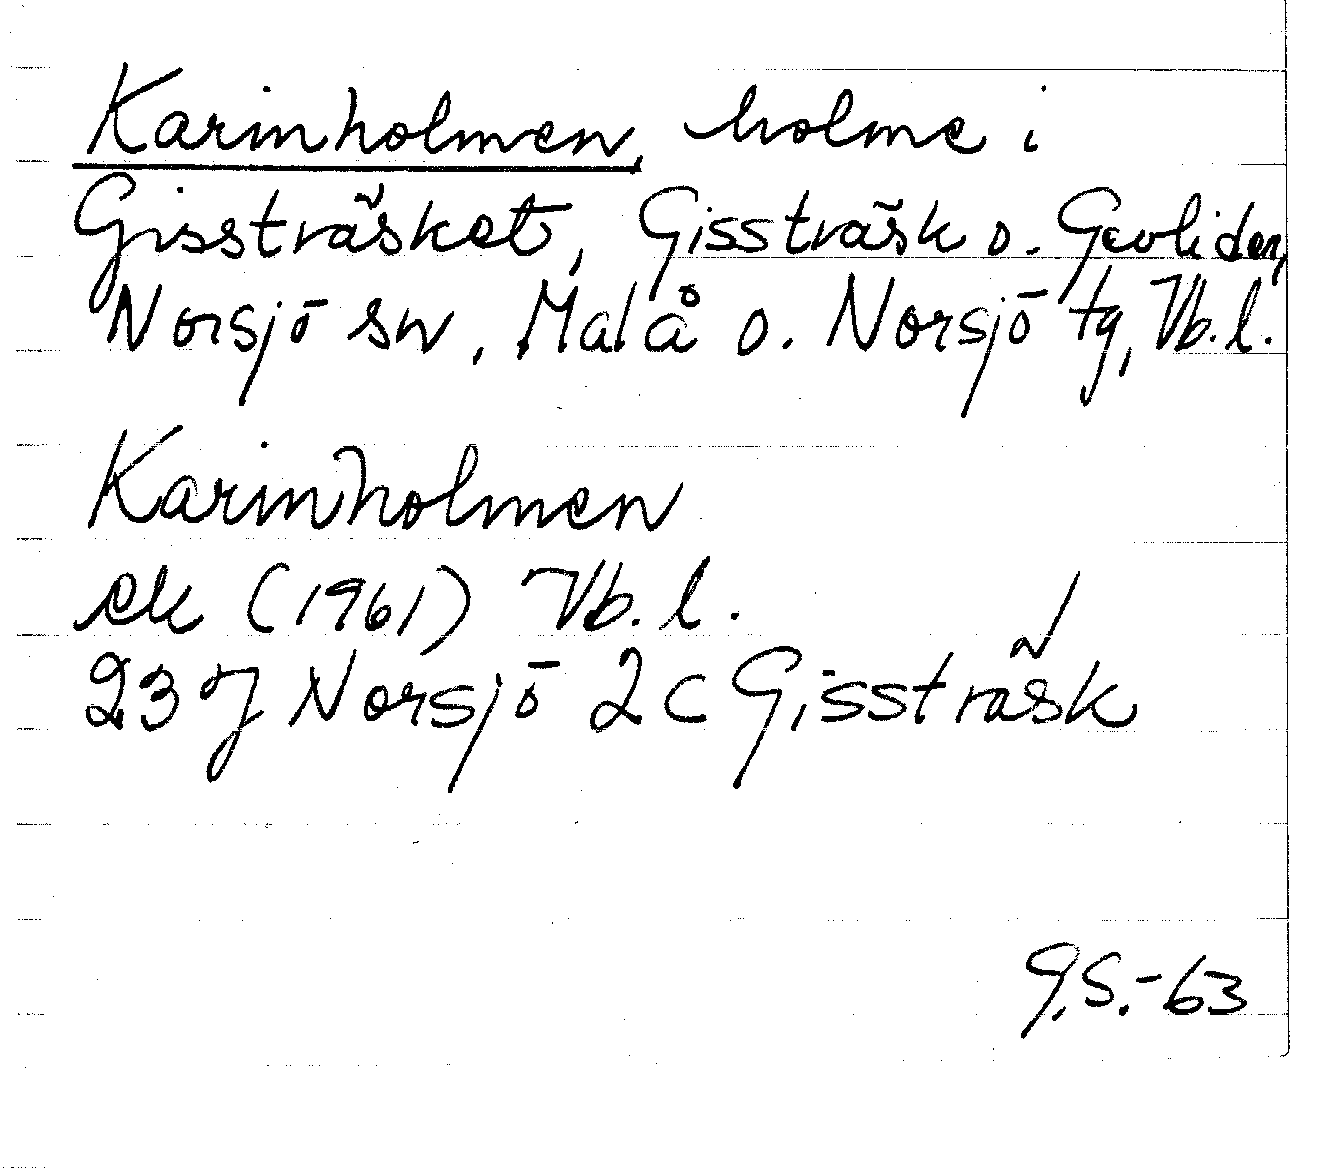 Karinholmen, holme i
Gissträsket, Gissträsk o. Gevliden,
Norsjö sn, Malå o. Norsjö tg, Vb. l.
Karinholmen
ek (1961) Vb. l.
23 J Norsjö 2 c Gissträsk
G.S.-63